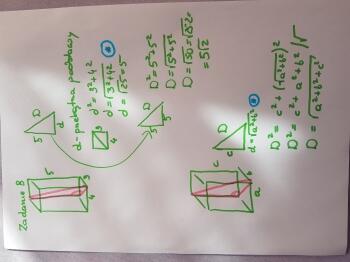 Zadanie 8
5
3
4
D
5
d
d - przekątna podstawy
3
4
d² = 3² + 4²
d = √3² + 4²
d = √25 = 5
D
5
5
D² = 5² + 5²
D = √5² + 5²
D = √50 = √25·2
= 5√2
c
b
a
D
c
d = √a² + b²
D² = c² + (√a² + b²)²
D² = c² + a² + b² /√
D = √a² + b² + c²